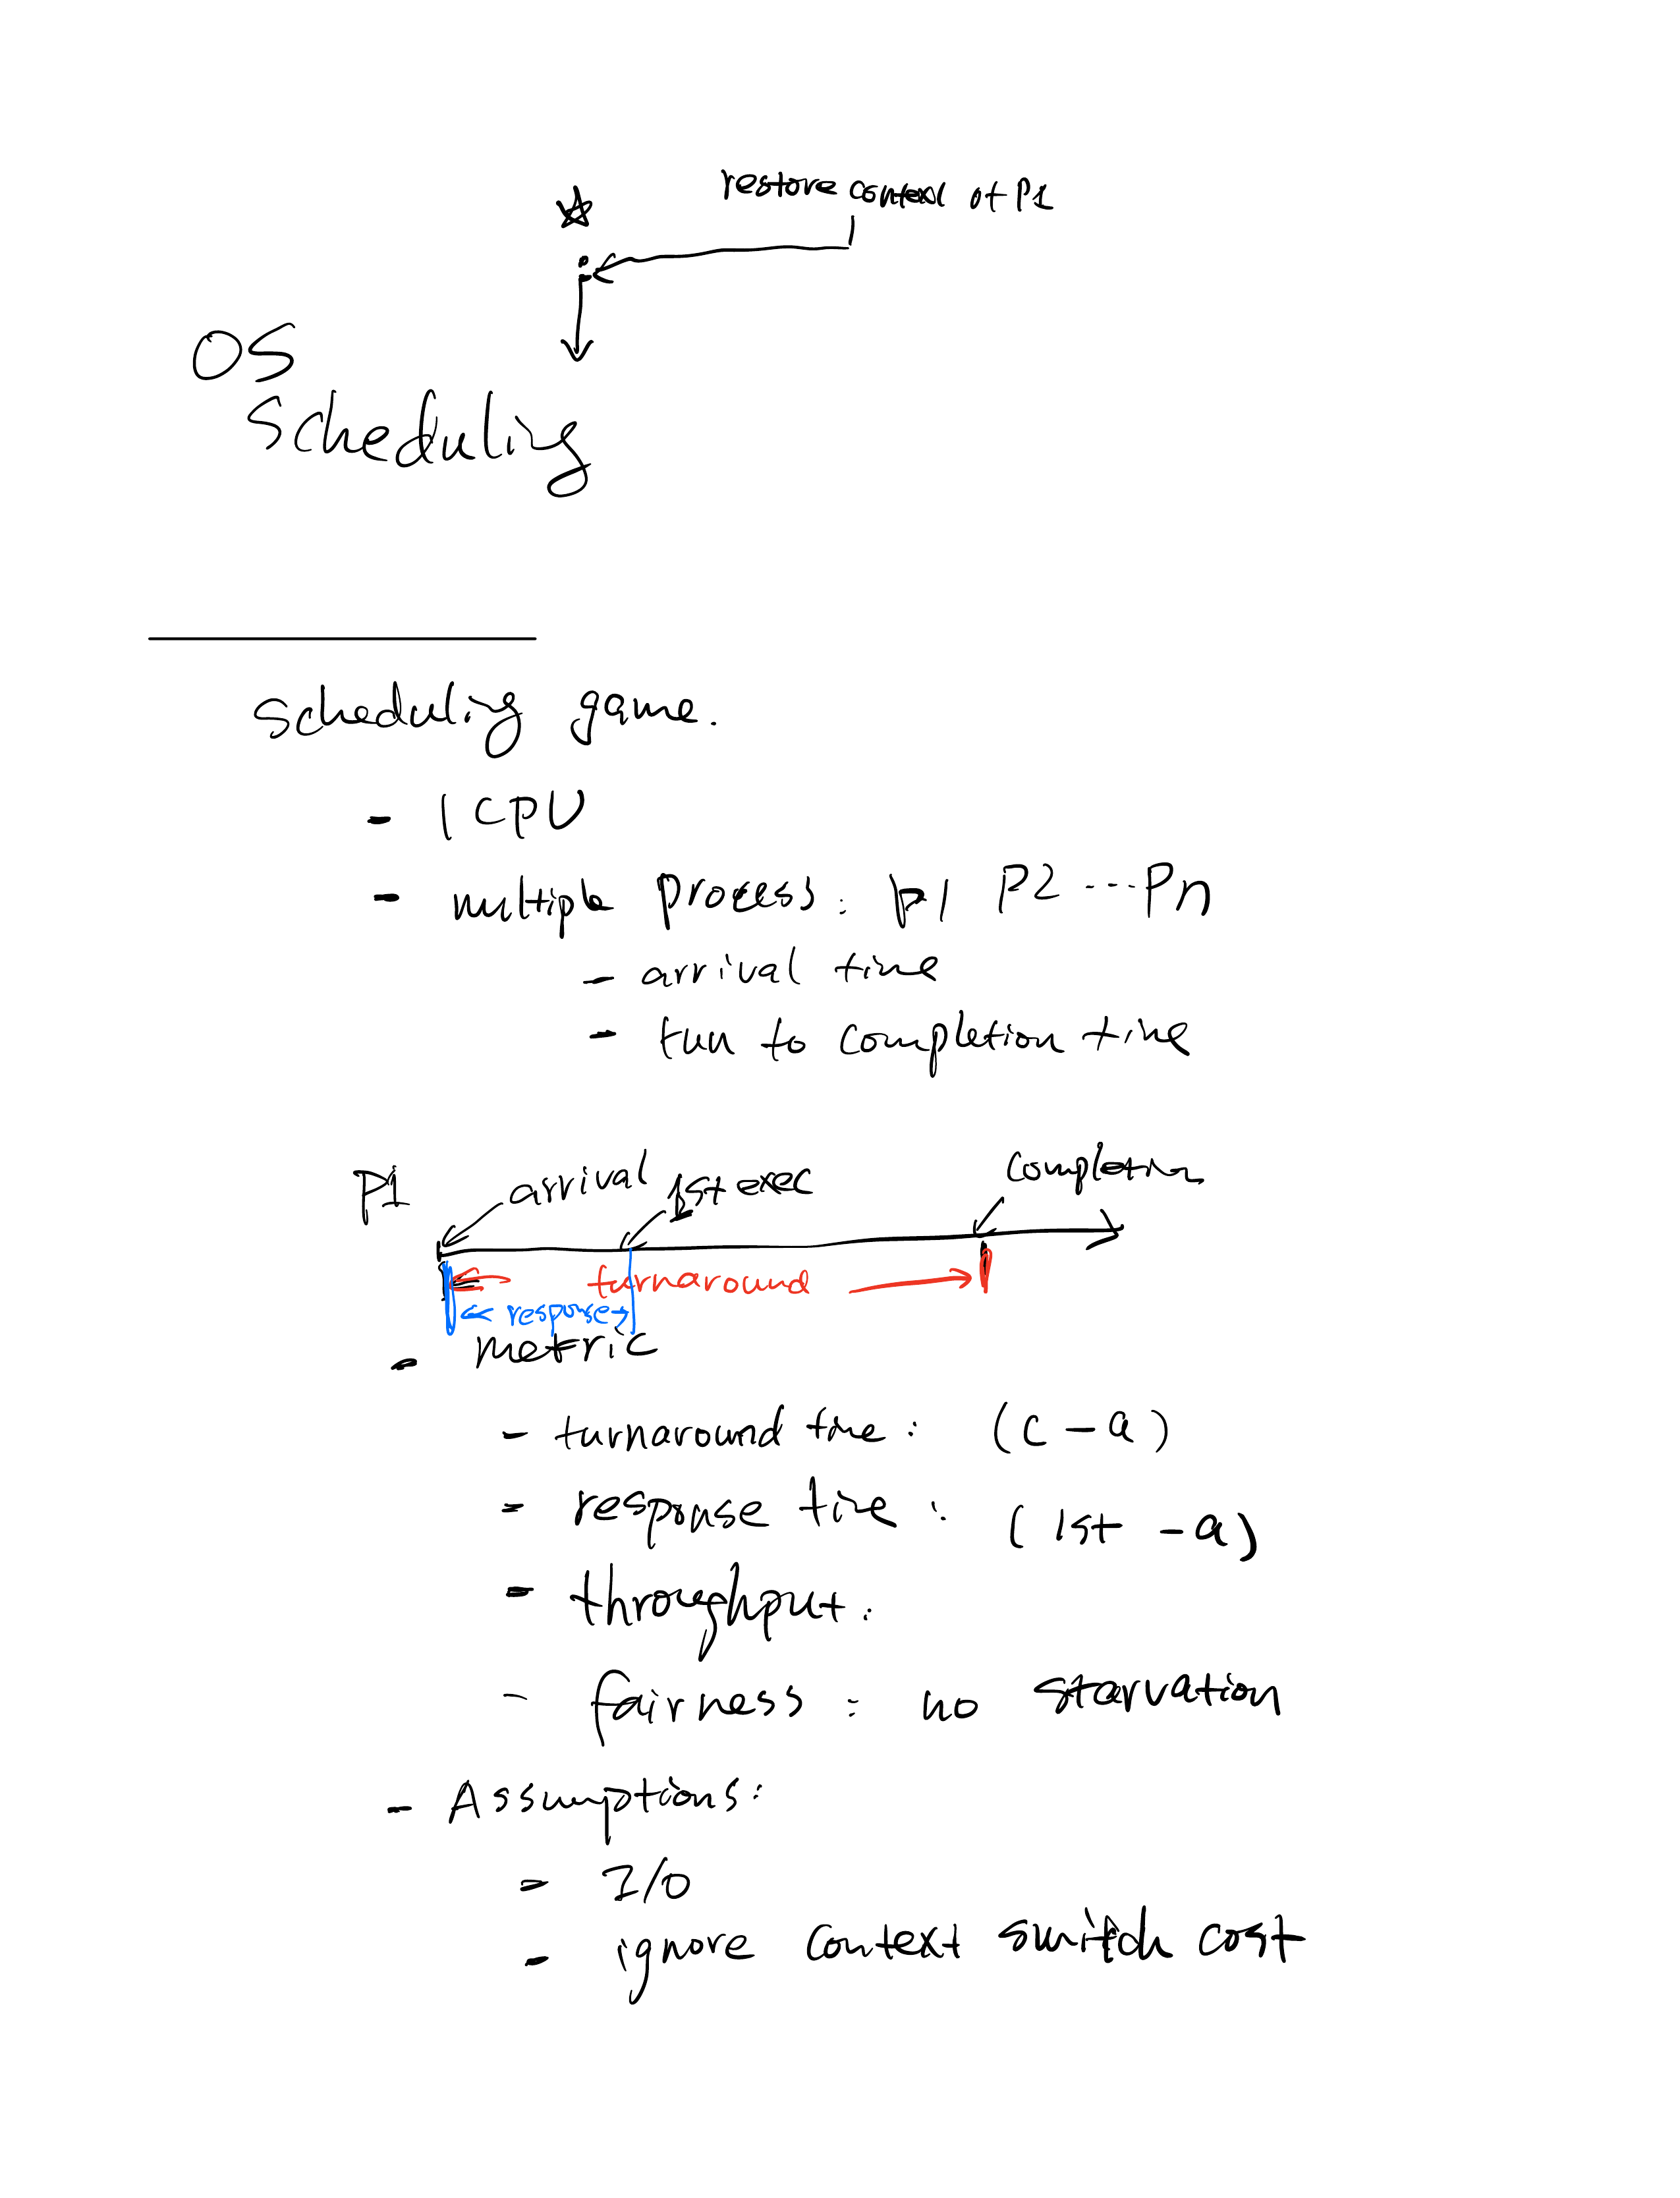 restore context of P1
OS
Scheduling
scheduling game.
- 1 CPU
- multiple process: P1 P2 ... Pn
- arrival time
- run to completion time
P1 arrival 1st exec completion
turnaround
response
- metric
- turnaround time: (C - a)
- response time: (1st - a)
- throughput:
- fairness: no starvation
- Assumptions:
- I/O
- ignore context switch cost